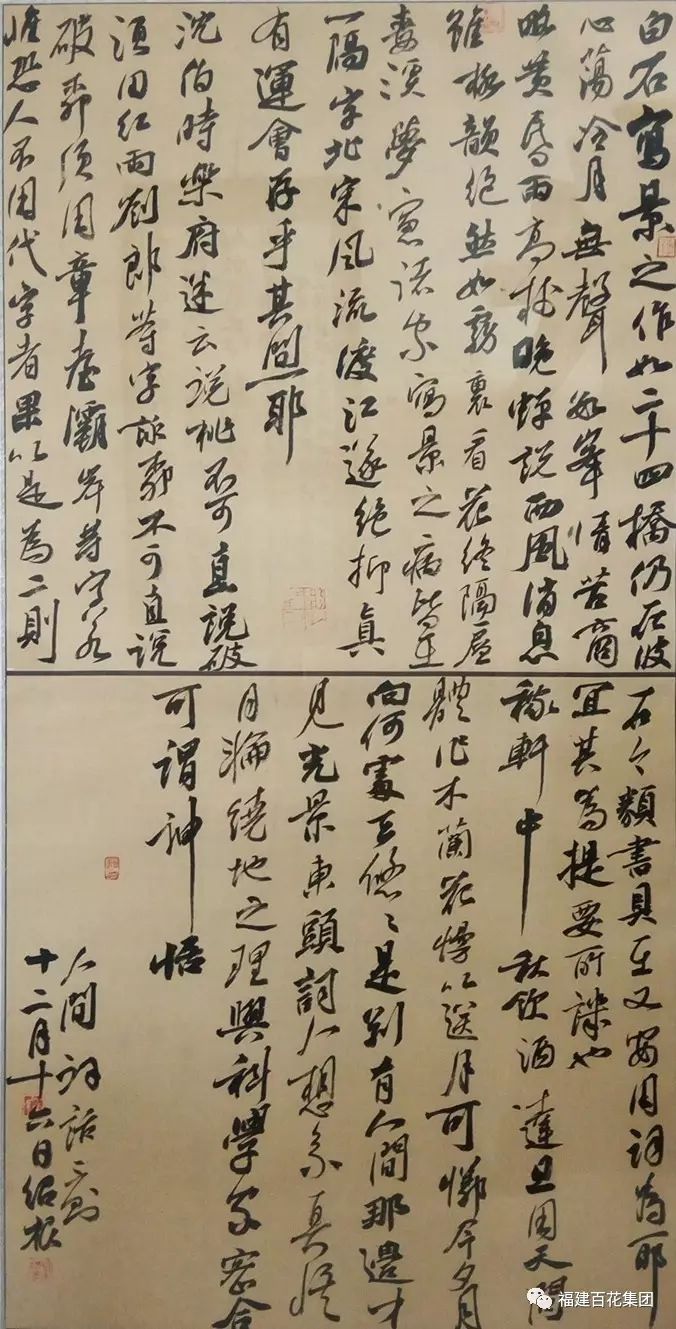 白石寫景之作如二十四橋仍在波
心蕩冷月無聲數峯情苦商
略黃昏雨高樹晚蟬說西風消息
雖格韻絕然如霧裏看花終隔層
梅溪夢窗諸家寫景之病皆在
一隔字北宋風流渡江遂絕抑真
有運會存乎其間耶
沈伯時樂府迷云說桃不可直說破
須用紅雨劉郎等字詠柳不可直說
破柳須用章臺灞岸等字若
惟恐人不用代字者果以是為工則
古今類書具在又安用詞為耶
宜其為提要所譏也
稼軒中秋飲酒達旦用天問
體作木蘭花慢以送月可憐今夕月
向何處去悠悠是別有人間那邊才
見光景東頭詞人想象直悟
月輪繞地之理與科學家密合
可謂神悟
人間詞話三則
十二月十六日紹根
福建百花集团